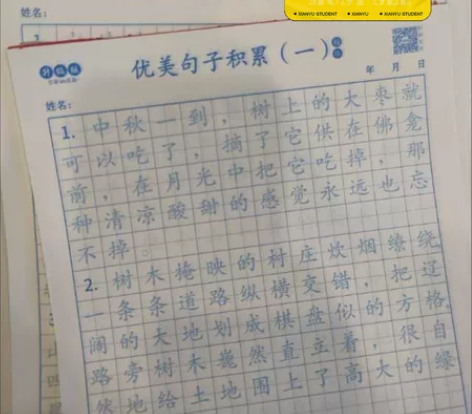 姓名:
XIANYU STUDENT • XIANYU • XIANYU STUDENT
优美句子积累(一)
年 月 日
姓名:
1. 中秋一到,树上的大枣就
可以吃了,摘了它供在佛龛
前,在月光中把它吃掉,那
种清凉酸甜的感觉永远也忘
不掉。
2. 树木掩映的村庄炊烟缭绕
一条条道路纵横交错,把辽
阔的大地划成棋盘似的方格,
路旁树木巍然直立着,很自
然地给土地围上了高大的绿